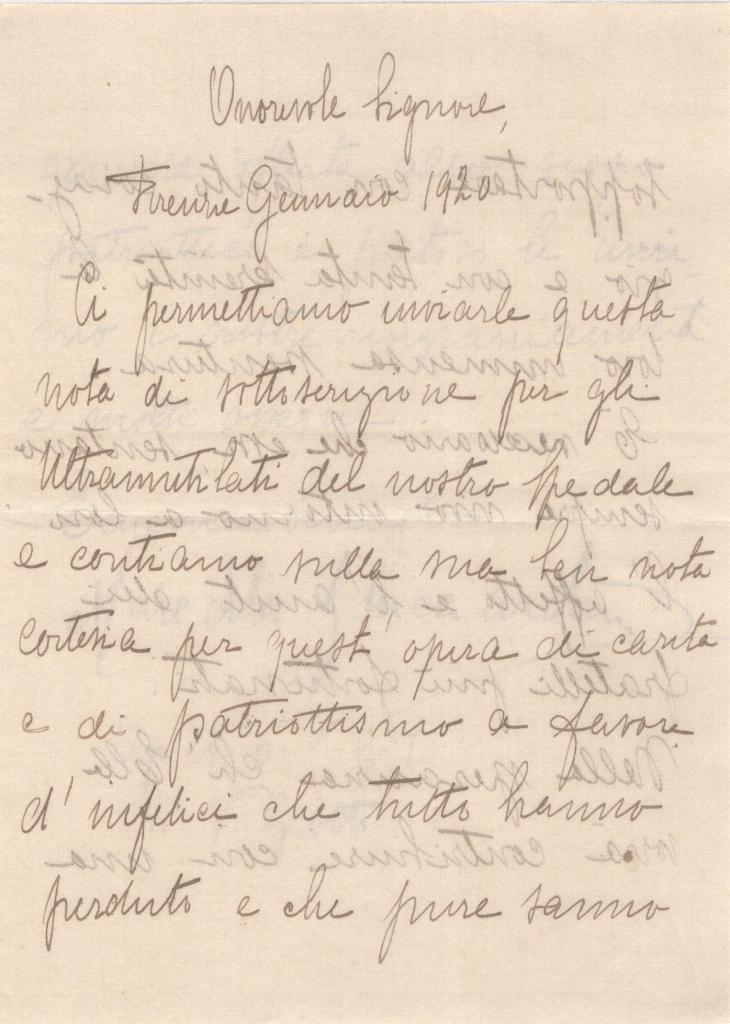 Onorevole Signore,
Firenze Gennaio 1920
Ci permettiamo inviarle questa
nota di sottoscrizione per gli
Ultramutilati del nostro Spedale
e contiamo sulla sua ben nota
cortesia per quest'opera di carità
e di patriottismo a favore
d'infelici che tutto hanno
perduto e che pure sanno